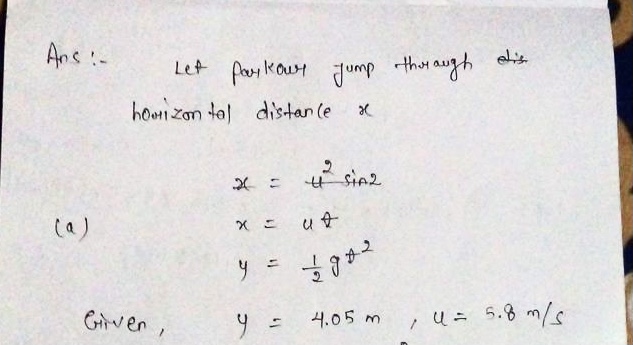 Ans :- Let parkour jump through dis
horizontal distance x
x = u² sin2
(a) x = ut
y = 1/2 gt²
Given, y = 4.05 m , u = 5.8 m/s